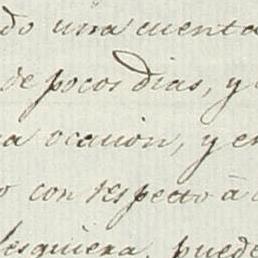 do una cuenta
de pocos Dias, y
a ocacion, y en
o con respecto à
lesquiera, puede